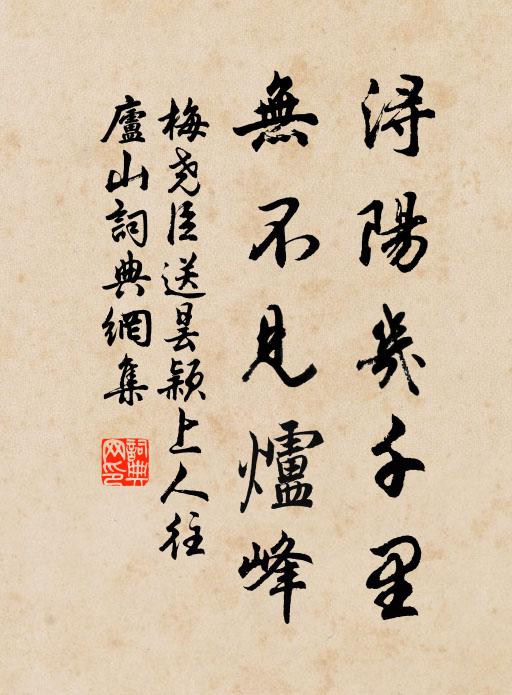 潯陽幾千里
無不見爐峰
梅堯臣送曇穎上人往
廬山詞典網集
詞典网印